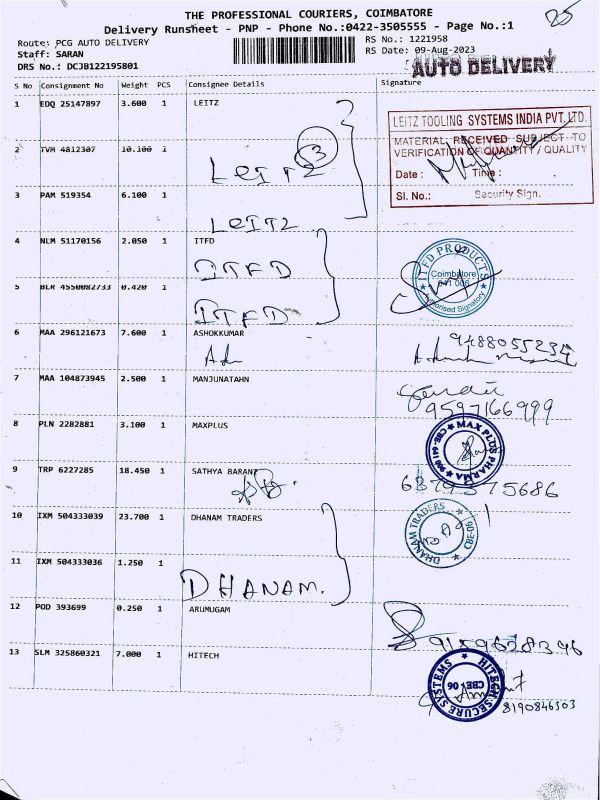 THE PROFESSIONAL COURIERS, COIMBATORE
25
Delivery Runsheet - PNP - Phone No.:0422-3505555 - Page No.:1
Route: PCG AUTO DELIVERY
RS No.: 1221958
Staff: SARAN
RS Date: 09-Aug-2023
DRS No.: DCJB122195801
AUTO DELIVERY
S No Consignment No Weight PCS Consignee Details Signature
1 EDQ 25147897 3.600 1 LEITZ
LEITZ TOOLING SYSTEMS INDIA PVT. LTD.
MATERIAL RECEIVED SUBJECT TO
VERIFICATION OF QUANTITY / QUALITY
Date : Time :
Sl. No.: Security Sign.
2 TVM 4812307 10.100 1
LEITZ 3
3 PAM 519354 6.100 1
LEITZ
4 NLM 51170156 2.050 1 ITFD
ITFD
ITFD PRODUCTS
Coimbatore
641 006
Authorised Signatory
5 BLR 4550082733 0.420 1
ITFD
6 MAA 296121673 7.600 1 ASHOKKUMAR
9488055234
7 MAA 104873945 2.500 1 MANJUNATAHN
9597166999
8 PLN 2282881 3.100 1 MAXPLUS
MAX PLUS PHARMA
9 TRP 6227285 18.450 1 SATHYA BARANI
6379375686
10 IXM 504333039 23.700 1 DHANAM TRADERS
DHANAM TRADERS
11 IXM 504333036 1.250 1
DHANAM.
12 POD 393699 0.250 1 ARUMUGAM
9159628396
13 SLM 325860321 7.000 1 HITECH
HITECH SECURE SYSTEMS
8190846303